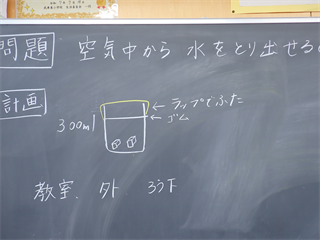 問題 空気中から 水をとり出せる
計画
ラップでふた
ゴム
300ml
教室、 外 ろう下